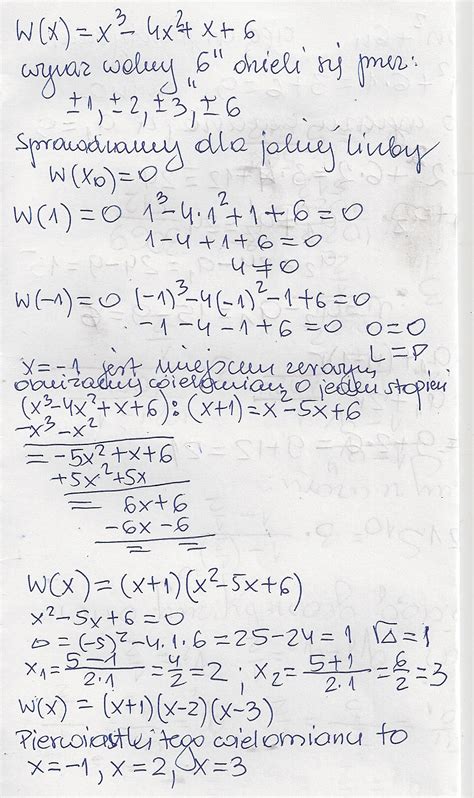 W(x) = x³ - 4x² + x + 6
wyraz wolny "6" dzieli się przez:
±1, ±2, ±3, ±6
Sprawdzamy dla jakiej liczby
W(x₀) = 0
W(1) = 0 1³ - 4·1² + 1 + 6 = 0
1 - 4 + 1 + 6 = 0
4 ≠ 0
W(-1) = 0 (-1)³ - 4(-1)² - 1 + 6 = 0
-1 - 4 - 1 + 6 = 0 0 = 0
L = P
x = -1 jest miejscem zerowym
obniżamy wielomian o jeden stopień
(x³ - 4x² + x + 6) : (x+1) = x² - 5x + 6
-x³ - x²
= -5x² + x + 6
+5x² + 5x
= 6x + 6
-6x - 6
= =
W(x) = (x+1)(x² - 5x + 6)
x² - 5x + 6 = 0
Δ = (-5)² - 4·1·6 = 25 - 24 = 1 √Δ = 1
x₁ = (5-1)/(2·1) = 4/2 = 2 ; x₂ = (5+1)/(2·1) = 6/2 = 3
W(x) = (x+1)(x-2)(x-3)
Pierwiastki tego wielomianu to
x = -1, x = 2, x = 3